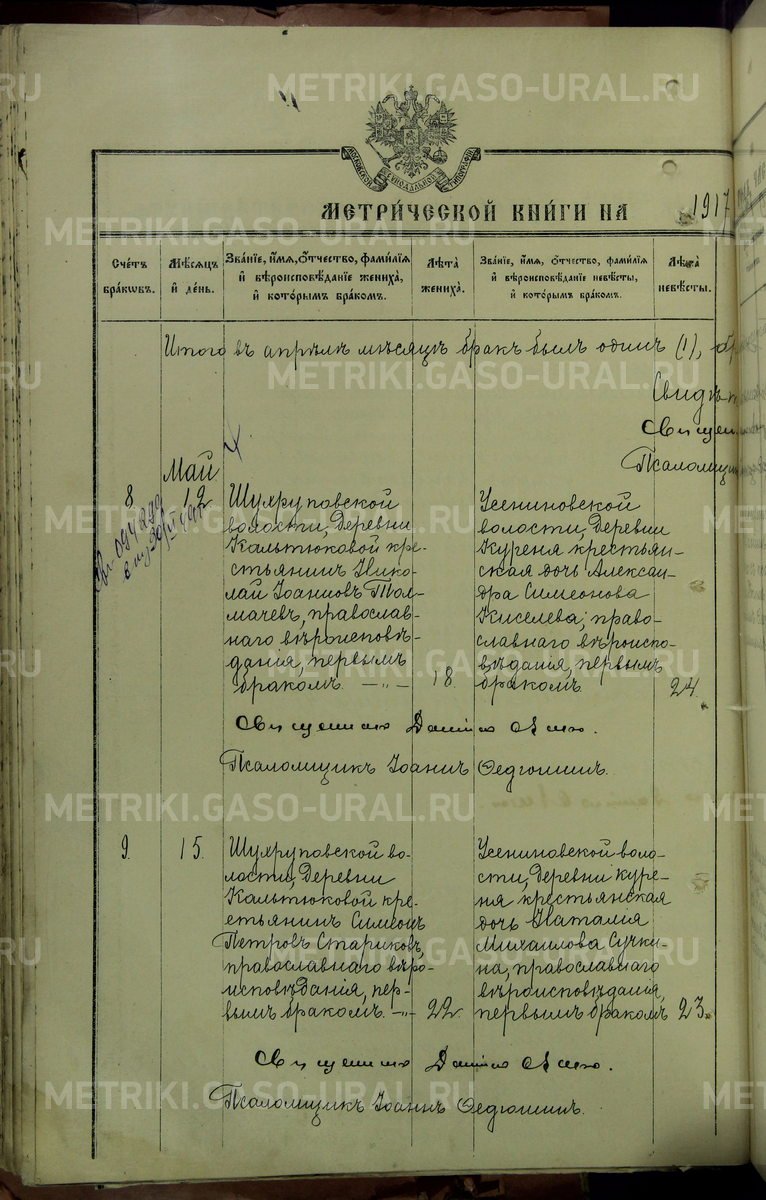 METRIKI.GASO-URAL.RU
МОСКОВСКОЙ СѴНОДАЛЬНОЙ ТИПОГРАФІИ
МЕТРИ́ЧЕСКОЙ КНИ́ГИ НА 1917
Сче́тъ бра́кѡвъ.
Мѣ́сяцъ и҆ де́нь.
Зва́нїе, и҆́мѧ, ѻ҆́тчество, фами́лїѧ и҆ вѣроисповѣ́данїе жениха̀, и҆ кото́рымъ бра́комъ.
Лѣ́та жениха̀.
Зва́нїе, и҆́мѧ, ѻ҆́тчество, фами́лїѧ и҆ вѣроисповѣ́данїе невѣ́сты, и҆ кото́рымъ бра́комъ.
Лѣ́та невѣ́сты.
Итого въ апрѣлѣ мѣсяцѣ бракъ былъ одинъ (1),
Свидѣт
Священ
Псаломщик
Май
8
12
Шухруповской
волости, Деревни
Кальтюковой кре-
стьянинъ Нико-
лай Іоанновъ Тол-
мачевъ, православ-
наго вѣроисповѣ-
данія, первымъ
бракомъ. —„—
18.
Усениновской
волости, Деревни
Куреня крестьян-
ская дочь Алексан-
дра Симеонова
Киселева, право-
славнаго вѣроиспо-
вѣданія, первымъ
бракомъ
24.
Священникъ
Псаломщикъ Іоаннъ Федюшинъ.
9.
15.
Шухруповской во-
лости, Деревни
Кальтюковой кре-
стьянинъ Симеонъ
Петровъ Стариковъ,
православнаго вѣро-
исповѣданія, пер-
вымъ бракомъ. —„—
22.
Усениновской воло-
сти, Деревни Куре-
ня крестьянская
дочь Наталія
Михаилова Сучки-
на, православнаго
вѣроисповѣданія,
первымъ бракомъ
23.
Священникъ
Псаломщикъ Іоаннъ Федюшинъ.